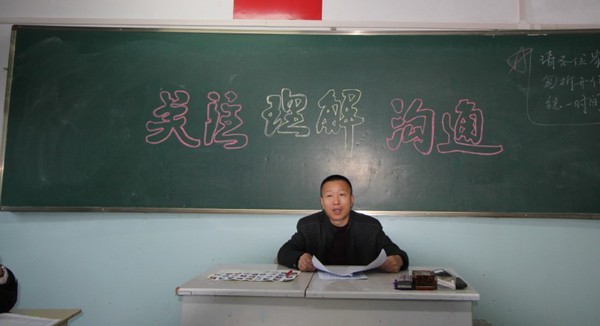 关注 理解 沟通
请各位
统一时间